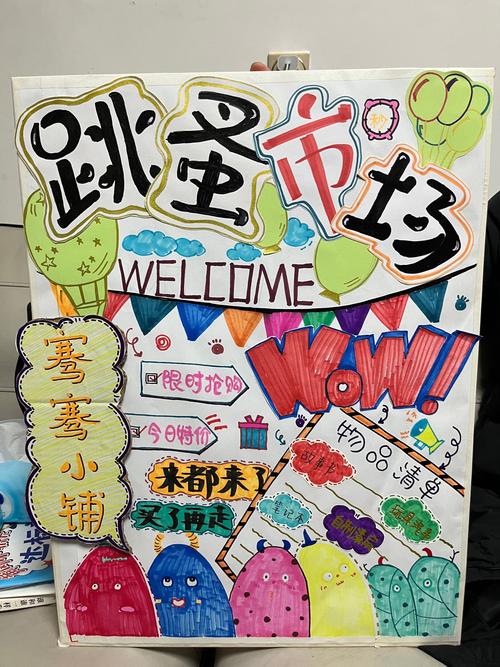 跳蚤市场
秒
WELCOME
骞骞小铺
WOW!!
限时抢购
今日特价
物品清单
来都来了
买了再走
故事书
笔记本